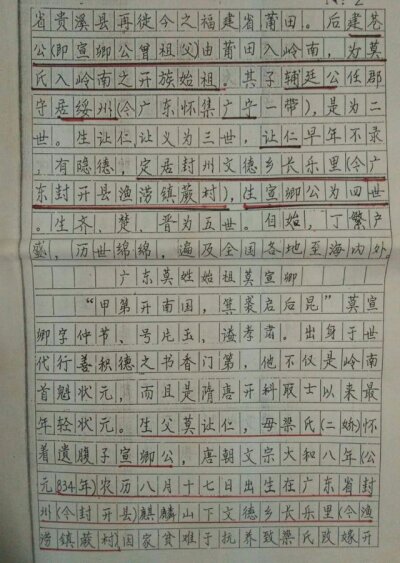 省贵溪县再徙今之福建省莆田。后建苍
公(即宣卿公曾祖父)由莆田入岭南,为莫
氏入岭南之开族始祖。其子辅廷公任郡
守居绥州(今广东怀集广宁一带),是为二
世。生让仁,让义为三世,让仁早年不录
,有隐德,定居封州文德乡长乐里(今广
东封开县渔涝镇蕨村),生宣卿公为四世
。生齐、楚、晋为五世。自始,丁繁户
盛,历世绵绵,遍及全国各地至海内外。
广东莫姓始祖莫宣卿
“甲第开南国,箕裘启后昆”莫宣
卿字仲节、号片玉、谥孝肃。出身于世
代行善积德之书香门第,他不仅是岭南
首魁状元,而且是隋唐开科取士以来最
年轻状元。生父莫让仁,母梁氏(二娇)怀
着遗腹子宣卿公,唐朝文宗大和八年(公
元834年)农历八月十七日出生在广东省封
州(今封开县)麒麟山下文德乡长乐里(今渔
涝镇蕨村)因家贫难于抚养致梁氏改嫁开